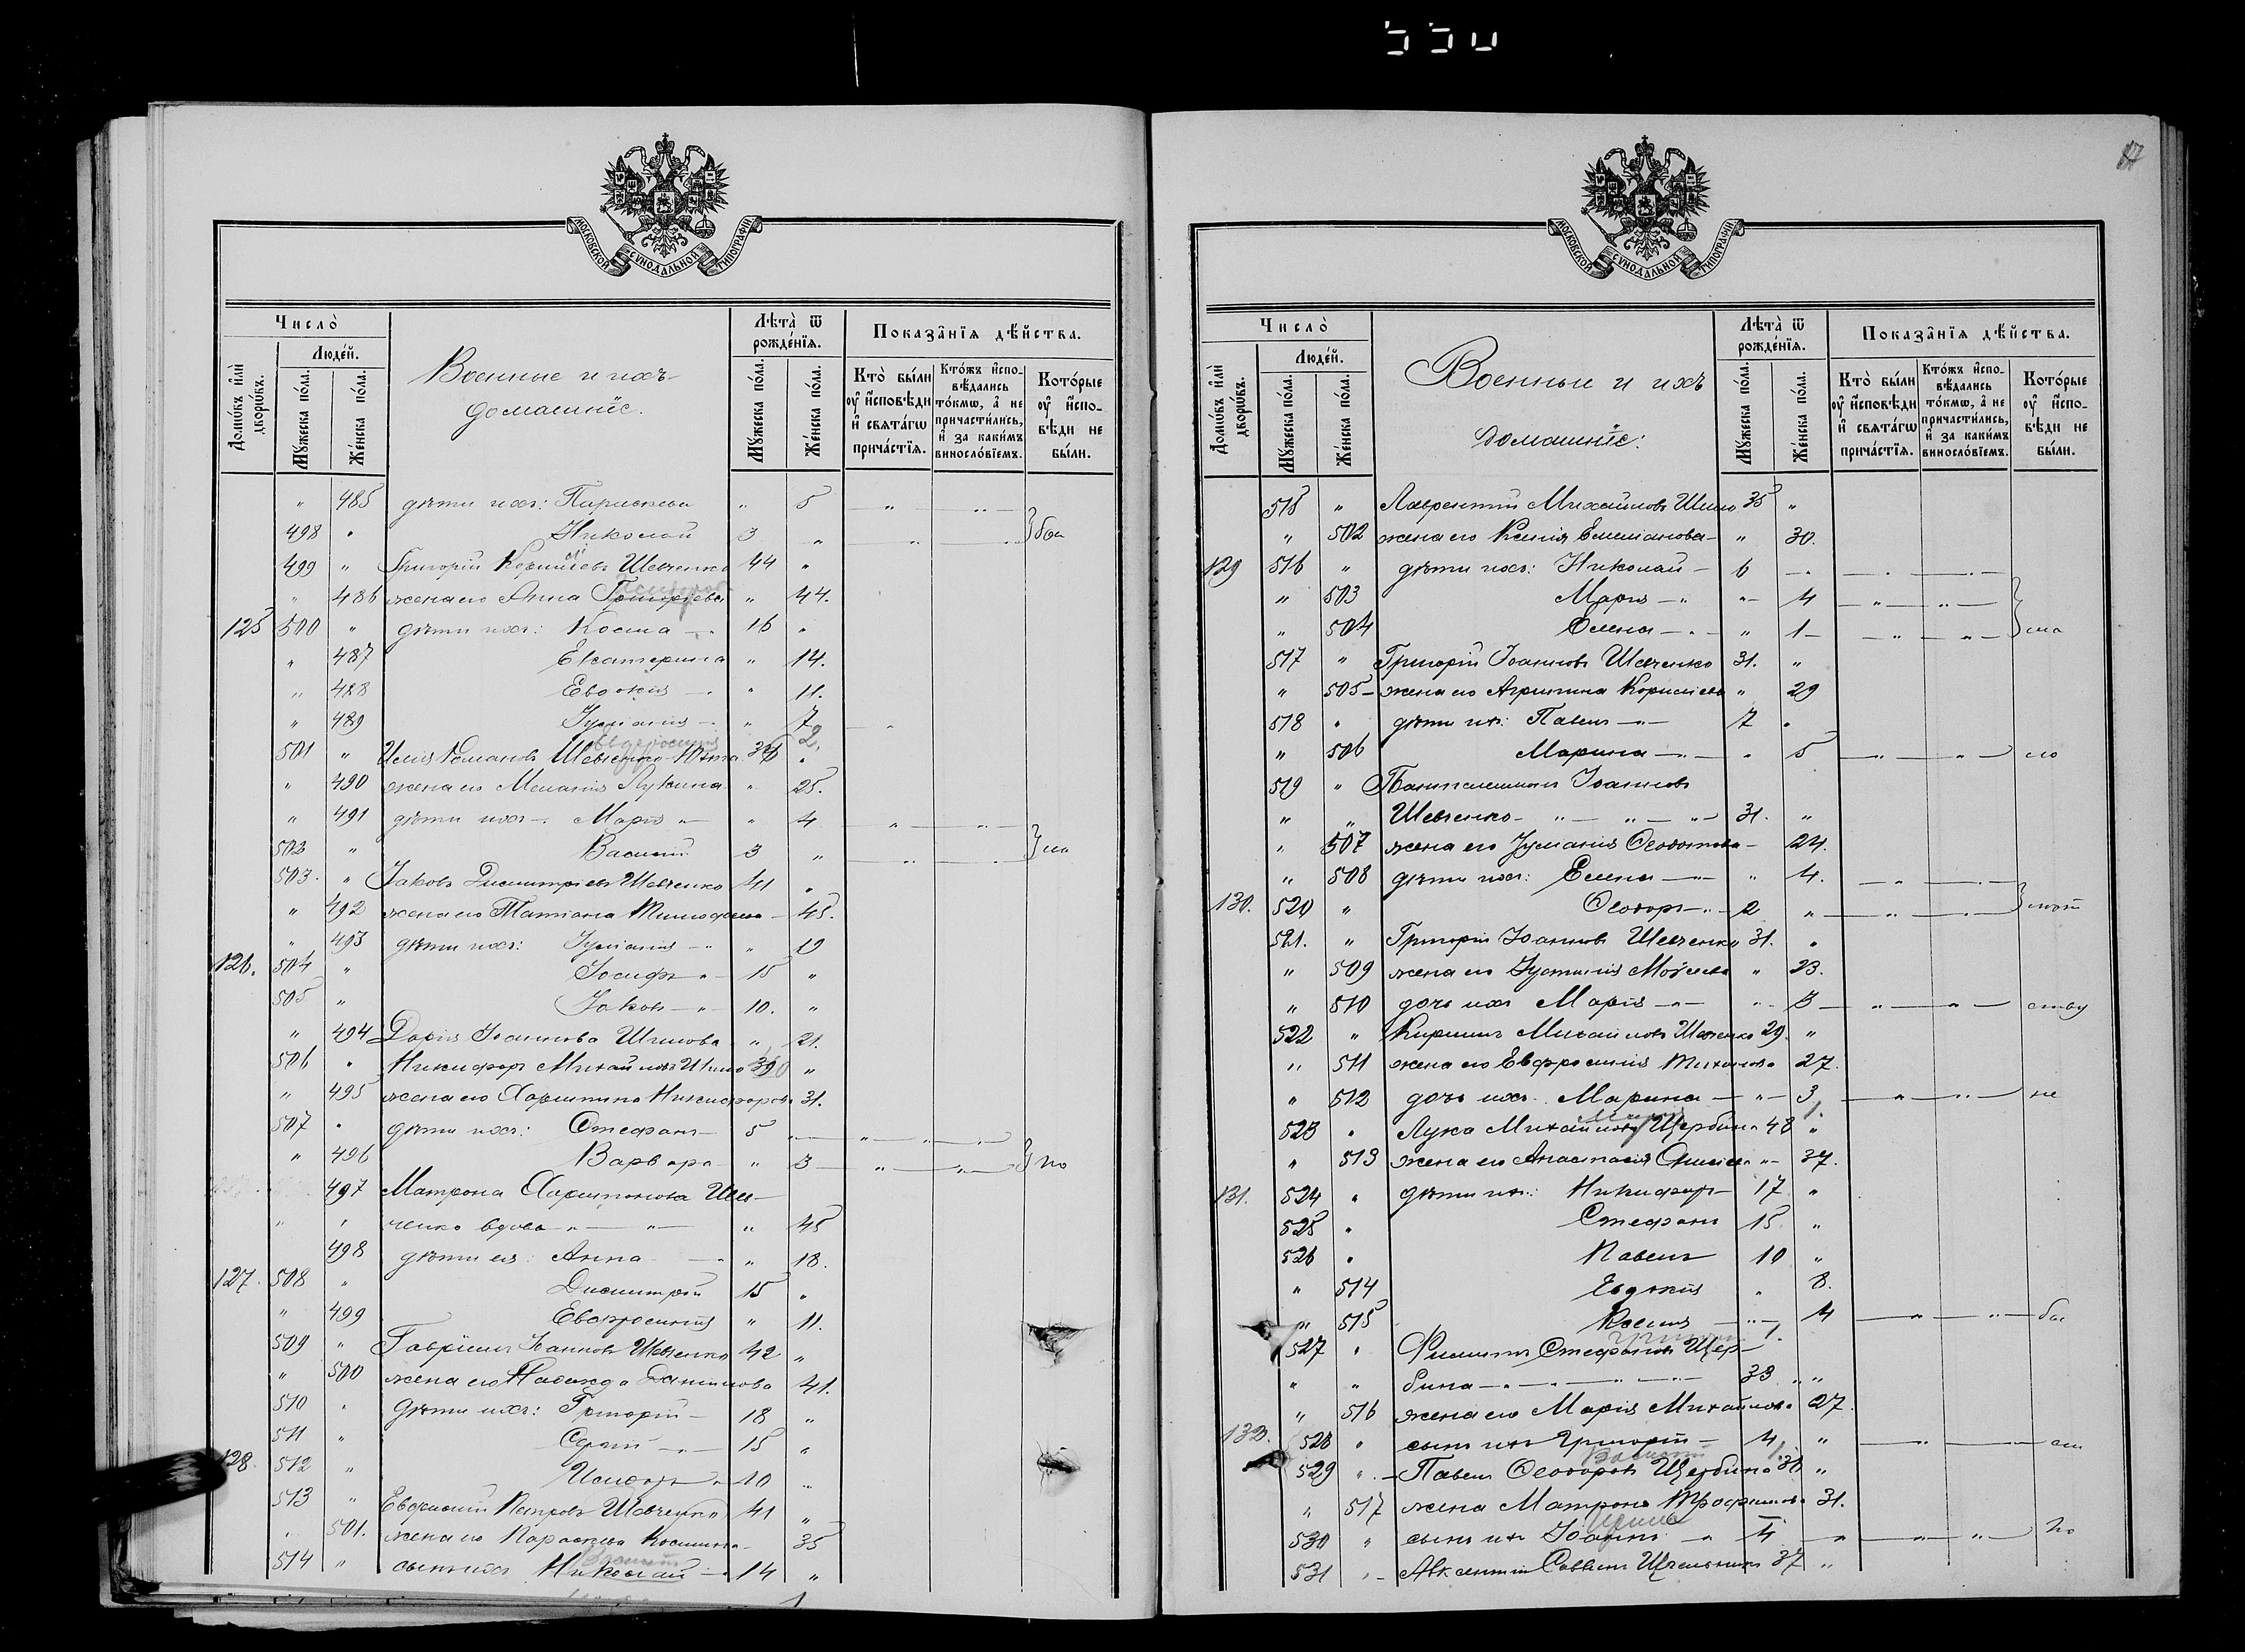 Московской Сѵнодальной Типографіи
Число̀
Люде́й.
Домѡ́въ и҆лѝ дворѡ́въ.
Мꙋ́жеска по́ла.
Же́нска по́ла.
Военные и ихъ
домашніе.
Лѣта̀ ѿ рожде́нїѧ.
Мꙋ́жеска по́ла.
Же́нска по́ла.
Показа̑нїѧ дѣ́йства.
Кто̀ бы́ли оу҆ и҆сповѣ́ди и҆ свѧта́гѡ прича́стїѧ.
Кто́жъ и҆сповѣ́дались то́кмѡ, а҆ не причасти́лись, и҆ за каки́мъ винosло́вїемъ.
Кото́рые оу҆ и҆сповѣ́ди не бы́ли.
" 485 дѣти ихъ: Параскева " 5
498 " Николай 3 "
499 " Григорій Корниліевъ Шевченко 44 "
" 486 жена его Анна Григорьева " 44.
125 500 " дѣти ихъ: Косма 16 "
" 487 Екатерина " 14.
" 488 Евдокія " 11.
" 489 Іуліанія " 7
Евфросинія 2.
501 " Илія Романовъ Шевченко 36 "
" 490 жена его Меланія Лукина " 25.
" 491 дѣти ихъ: Марія " 4
502 " Василій 3 "
503. " Іаковъ Димитріевъ Шевченко 41 "
" 492 жена его Татіана Тимофеева 45.
" 493 дѣти ихъ: Іуліанія " 19
126. 504 " Іосифъ 15 "
505 " Іаковъ 10. "
" 494 Дарія Іоаннова Шилова " 21.
506 " Никифоръ Михайловъ Шило 39 "
" 495 жена его Харитина Никифорова 31.
507 " дѣти ихъ: Стефанъ 5
" 496 Варвара " 3 по
497 Матрона Харитонова Шев-
" " ченко вдова " 45
498 дѣти ея: Анна " 18.
127. 508 " Димитрій 15 "
" 499 Евфросинія " 11.
509 " Гавріилъ Іоанновъ Шевченко 42 "
" 500 жена его Надежда Даниилова 41.
510 " дѣти ихъ: Григорій 18 "
511 " Сергій 15 "
128. 512 " Исидоръ 10 "
513 " Евфимій Петровъ Шевченко 41 "
" 501. жена его Параскева Космина 35
514 " сынъ ихъ Николай 14 "
Московской Сѵнодальной Типографіи
17
Число̀
Люде́й.
Домѡ́въ и҆лѝ дворѡ́въ.
Мꙋ́жеска по́ла.
Же́нска по́ла.
Военные и ихъ
домашніе:
Лѣта̀ ѿ рожде́нїѧ.
Мꙋ́жеска по́ла.
Же́нска по́ла.
Показа̑нїѧ дѣ́йства.
Кто̀ бы́ли оу҆ и҆сповѣ́ди и҆ свѧта́гѡ прича́стїѧ.
Кто́жъ и҆сповѣ́дались то́кмѡ, а҆ не причасти́лись, и҆ за каки́мъ винosло́вїемъ.
Кото́рые оу҆ и҆сповѣ́ди не бы́ли.
515 " Лаврентій Михайловъ Шило 35 "
" 502 жена его Ксенія Емеліанова " 30.
129 516 " дѣти ихъ: Николай 6
" 503 Марія " 4
" 504 Елена " 1
517 " Григорій Іоанновъ Шевченко 31. "
" 505 жена его Агрипина Корниліева " 29
518 " дѣти ихъ: Павелъ 7 "
" 506 Марина " 5
519 " Пантелеимонъ Іоанновъ
" " Шевченко 31. "
" 507 жена его Іуліанія Феодотова 24.
" 508 дѣти ихъ: Елена " 4.
130. 520 " Феодоръ 2 "
521. " Григорій Іоанновъ Шевченко 31. "
" 509 жена его Іустинія Моѵсеева " 23.
" 510 дочь ихъ Марія " 3
522 " Кириллъ Михайловъ Шевченко 29. "
" 511 жена его Евфросинія Тихонова 27.
" 512 дочь ихъ Марина " 3 не
1.
523 " Лука Михайловъ Щербина 48 "
" 513 жена его Анастасія " 37.
131. 524 " дѣти ихъ: Никифоръ 17 "
525 " Стефанъ 15. "
526 " Павелъ 10 "
" 514 Евдокія " 8.
" 515 Ксенія " 4
527 " Филиппъ Стефановъ Щер-
" " бина 33 "
" 516 жена его Марія Михайлова 27.
132. 528 " сынъ ихъ Григорій 4 "
Василій 1.
529 " Павелъ Феодоровъ Щербина 38 "
" 517 жена Матрона Трофимова 31.
530 " сынъ ихъ Іоаннъ 4 по
531 " Авксентій Саввинъ 37 "